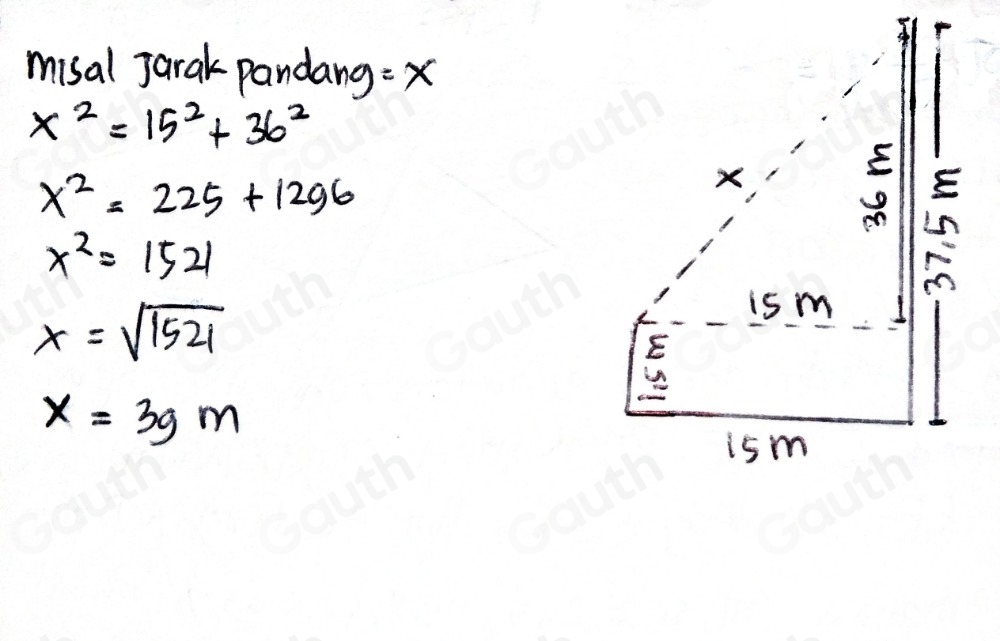 misal Jarak pandang = x
x² = 15² + 36²
x² = 225 + 1296
x² = 1521
x = √1521
x = 39 m
x
36 m
37,5 m
15 m
1,5 m
15 m
Gauth
Gauth
Gauth
Gauth
Gauth
Gauth
Gauth
Gauth
Gauth
Gauth
Gauth